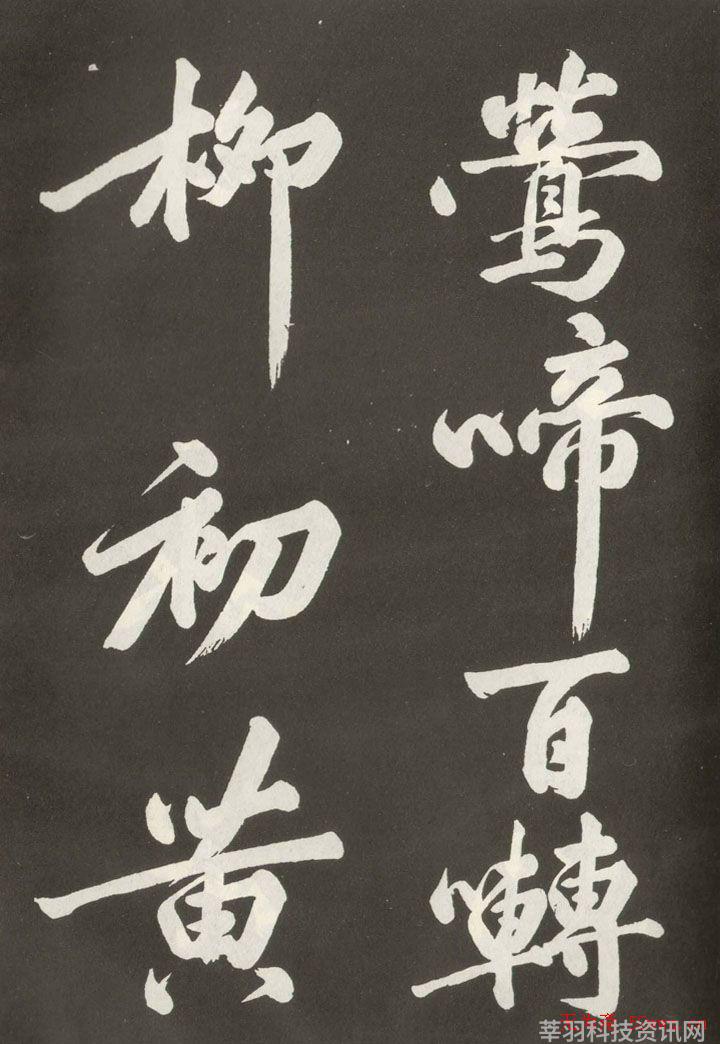 鶯啼百囀
柳初黃
莘羽科技资讯网